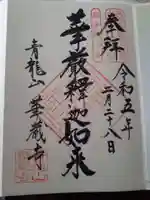 奉拝
令和五年
二月二十八日
華厳釋迦如来
青龍山 華厳寺